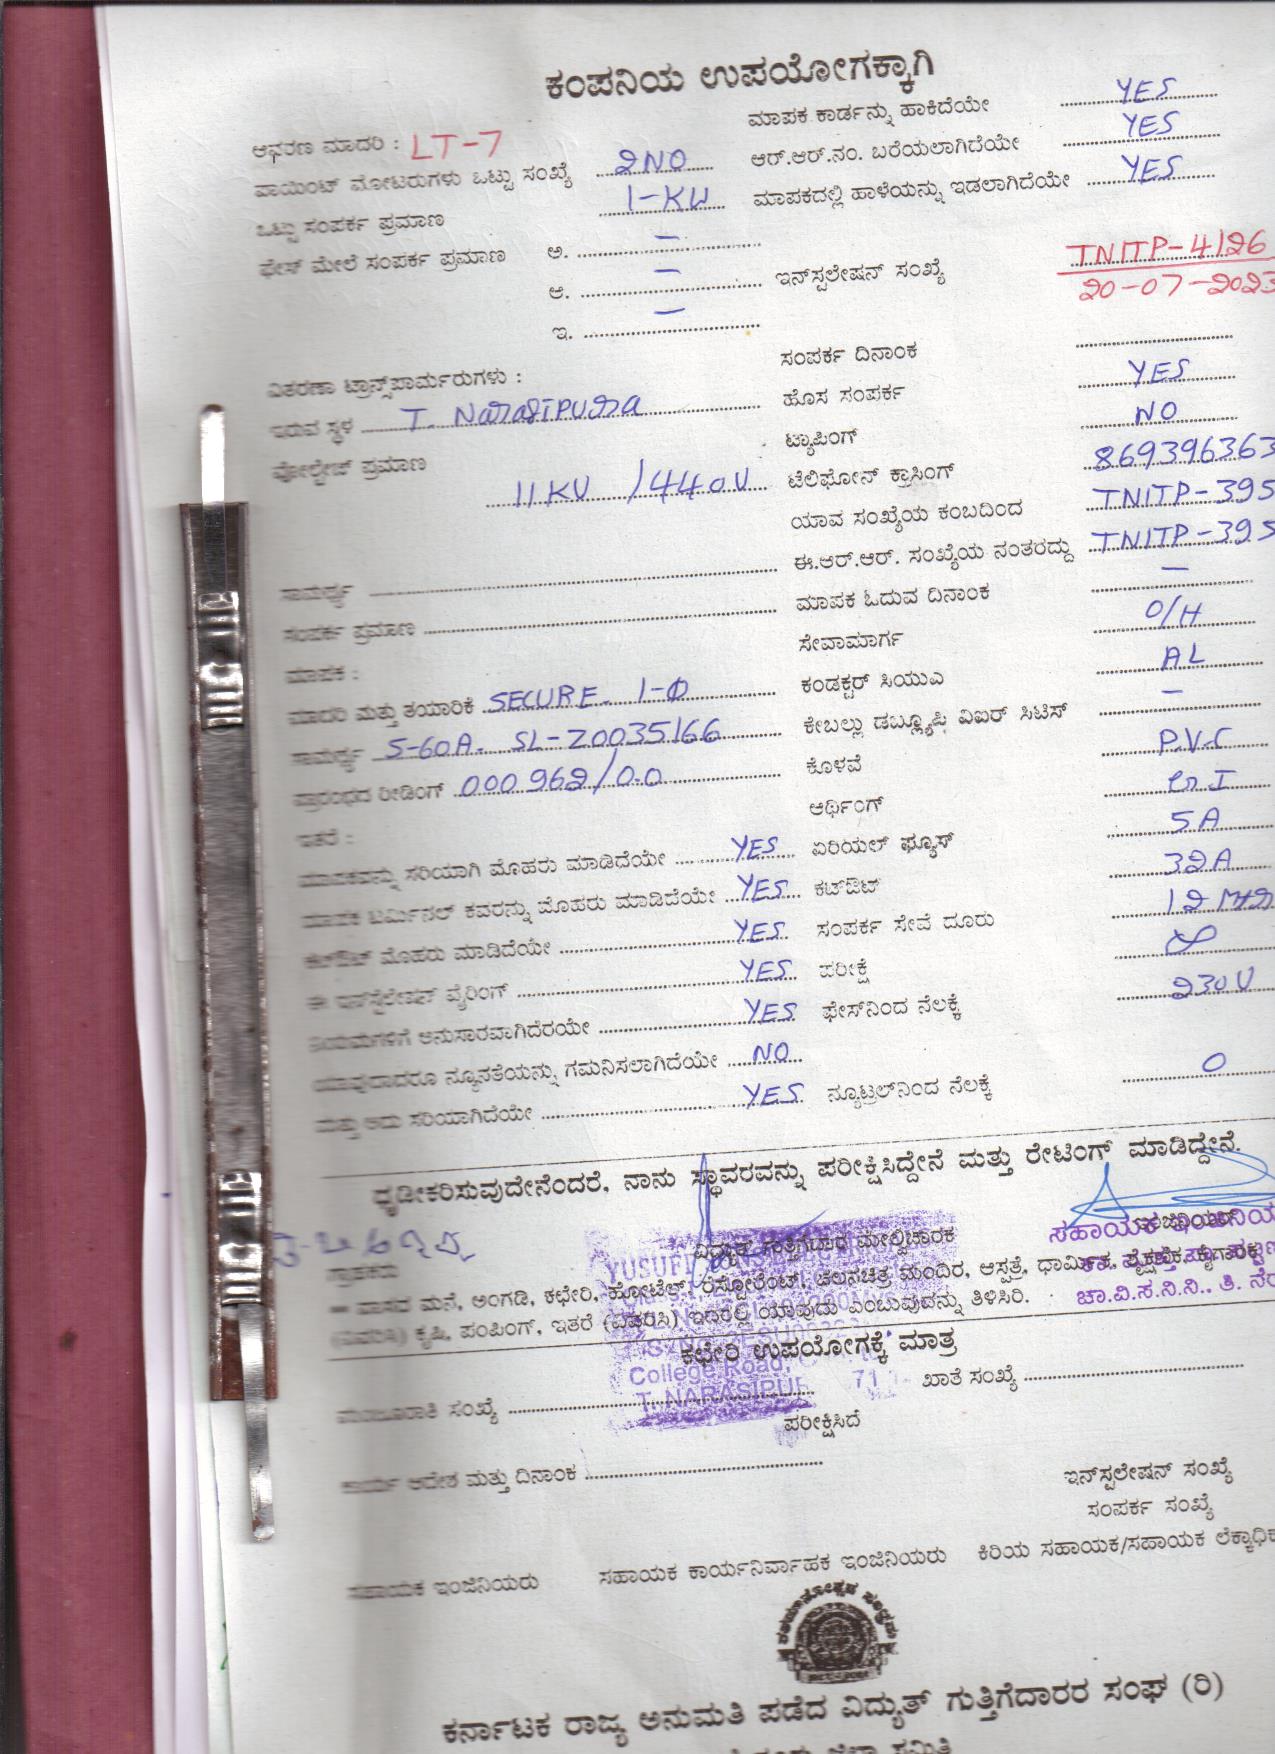 ಕಂಪನಿಯ ಉಪಯೋಗಕ್ಕಾಗಿ
ಆಭರಣ ಮಾದರಿ : LT-7
ಮಾಪಕ ಕಾರ್ಡನ್ನು ಹಾಕಿದೆಯೇ YES
ಪಾಯಿಂಟ್ ಮೋಟರುಗಳು ಒಟ್ಟು ಸಂಖ್ಯೆ 2NO
ಆರ್.ಆರ್.ನಂ. ಬರೆಯಲಾಗಿದೆಯೇ YES
ಒಟ್ಟು ಸಂಪರ್ಕ ಪ್ರಮಾಣ 1-KW
ಮಾಪಕದಲ್ಲಿ ಹಾಳೆಯನ್ನು ಇಡಲಾಗಿದೆಯೇ YES
ಫೇಸ್ ಮೇಲೆ ಸಂಪರ್ಕ ಪ್ರಮಾಣ ಅ. –
ಆ. –
ಇನ್‌ಸ್ಟಲೇಷನ್ ಸಂಖ್ಯೆ TNITP-4126
20-07-2023
ಇ. –
ಸಂಪರ್ಕ ದಿನಾಂಕ
ವಿತರಣಾ ಟ್ರಾನ್ಸ್‌ಪಾರ್ಮರುಗಳು :
ಹೊಸ ಸಂಪರ್ಕ YES
ಇರುವ ಸ್ಥಳ T. Narasipura
ಟ್ಯಾಪಿಂಗ್ NO
ವೋಲ್ಟೇಜ್ ಪ್ರಮಾಣ 11KV /440V
ಟೆಲಿಫೋನ್ ಕ್ರಾಸಿಂಗ್ 869396363
ಯಾವ ಸಂಖ್ಯೆಯ ಕಂಬದಿಂದ TNITP-395
ಸಾಮರ್ಥ್ಯ
ಈ.ಆರ್.ಆರ್. ಸಂಖ್ಯೆಯ ನಂತರದ್ದು TNITP-395
ಸಂಪರ್ಕ ಪ್ರಮಾಣ
ಮಾಪಕ ಓದುವ ದಿನಾಂಕ –
ಮಾಪಕ :
ಸೇವಾಮಾರ್ಗ O/H
ಮಾದರಿ ಮತ್ತು ತಯಾರಿಕೆ SECURE- 1-Φ
ಕಂಡಕ್ಟರ್ ಸಿಯುಎ AL
ಸಾಮರ್ಥ್ಯ 5-60A- SL-Z0035166
ಕೇಬಲ್ಲು ಡಬ್ಲ್ಯೂಪಿ ವಿಐಆರ್ ಸಿಟಿಸ್ –
ಪ್ರಾರಂಭದ ರೀಡಿಂಗ್ 000962/0.0
ಕೊಳವೆ P.V.C
ಇತರೆ :
ಆರ್ಥಿಂಗ್ GI
ಮಾಪಕವನ್ನು ಸರಿಯಾಗಿ ಮೊಹರು ಮಾಡಿದೆಯೇ YES
ಏರಿಯಲ್ ಫ್ಯೂಸ್ 5A
ಮಾಪಕ ಟರ್ಮಿನಲ್ ಕವರನ್ನು ಮೊಹರು ಮಾಡಿದೆಯೇ YES
ಕಟ್‌ಔಟ್ 32A
ಕಟ್‌ಔಟ್ ಮೊಹರು ಮಾಡಿದೆಯೇ YES
ಸಂಪರ್ಕ ಸೇವೆ ದೂರು 12
ಈ ಇನ್‌ಸ್ಟೆಲೇಶನ್ ವೈರಿಂಗ್ YES
ಪರೀಕ್ಷೆ ∞
ನಿಯಮಗಳಿಗೆ ಅನುಸಾರವಾಗಿದೆರಯೇ YES
ಫೇಸ್‌ನಿಂದ ನೆಲಕ್ಕೆ 230V
ಯಾವುದಾದರೂ ನ್ಯೂನತೆಯನ್ನು ಗಮನಿಸಲಾಗಿದೆಯೇ NO
ಮತ್ತು ಅದು ಸರಿಯಾಗಿದೆಯೇ YES
ನ್ಯೂಟ್ರಲ್‌ನಿಂದ ನೆಲಕ್ಕೆ 0
ಧೃಡೀಕರಿಸುವುದೇನೆಂದರೆ, ನಾನು ಸ್ಥಾವರವನ್ನು ಪರೀಕ್ಷಿಸಿದ್ದೇನೆ ಮತ್ತು ರೇಟಿಂಗ್ ಮಾಡಿದ್ದೇನೆ.
ಗ್ರಾಹಕರು
ವಿದ್ಯುತ್ ಗುತ್ತಿಗೆದಾರ ಮೇಲ್ವಿಚಾರಕ
ಇಂಜಿನಿಯರ್
ವಾಸದ ಮನೆ, ಅಂಗಡಿ, ಕಛೇರಿ, ಹೋಟೆಲ್, ರೆಸ್ಟೋರೆಂಟ್, ಚಲನಚಿತ್ರ ಮಂದಿರ, ಆಸ್ಪತ್ರೆ, ಧಾರ್ಮಿಕ, ಶೈಕ್ಷಣಿಕ, ಕೈಗಾರಿಕ
(ವಿವರಿಸಿ) ಕೃಷಿ, ಪಂಪಿಂಗ್, ಇತರೆ (ವಿವರಿಸಿ) ಇದರಲ್ಲಿ ಯಾವುದು ಎಂಬುವುದನ್ನು ತಿಳಿಸಿರಿ.
ಚಾ.ವಿ.ಸ.ನಿ.ನಿ., ತಿ.
YUSUF
College Road,
T. NARASIPUR
ಕಛೇರಿ ಉಪಯೋಗಕ್ಕೆ ಮಾತ್ರ
ಮಂಜೂರಾತಿ ಸಂಖ್ಯೆ
ಖಾತೆ ಸಂಖ್ಯೆ
ಪರೀಕ್ಷಿಸಿದೆ
ಕಾರ್ಯ ಆದೇಶ ಮತ್ತು ದಿನಾಂಕ
ಇನ್‌ಸ್ಟಲೇಷನ್ ಸಂಖ್ಯೆ
ಸಂಪರ್ಕ ಸಂಖ್ಯೆ
ಸಹಾಯಕ ಇಂಜಿನಿಯರು ಸಹಾಯಕ ಕಾರ್ಯನಿರ್ವಾಹಕ ಇಂಜಿನಿಯರು ಕಿರಿಯ ಸಹಾಯಕ/ಸಹಾಯಕ ಲೆಕ್ಕಾಧಿಕ
ಕರ್ನಾಟಕ ರಾಜ್ಯ ಅನುಮತಿ ಪಡೆದ ವಿದ್ಯುತ್ ಗುತ್ತಿಗೆದಾರರ ಸಂಘ (ರಿ)